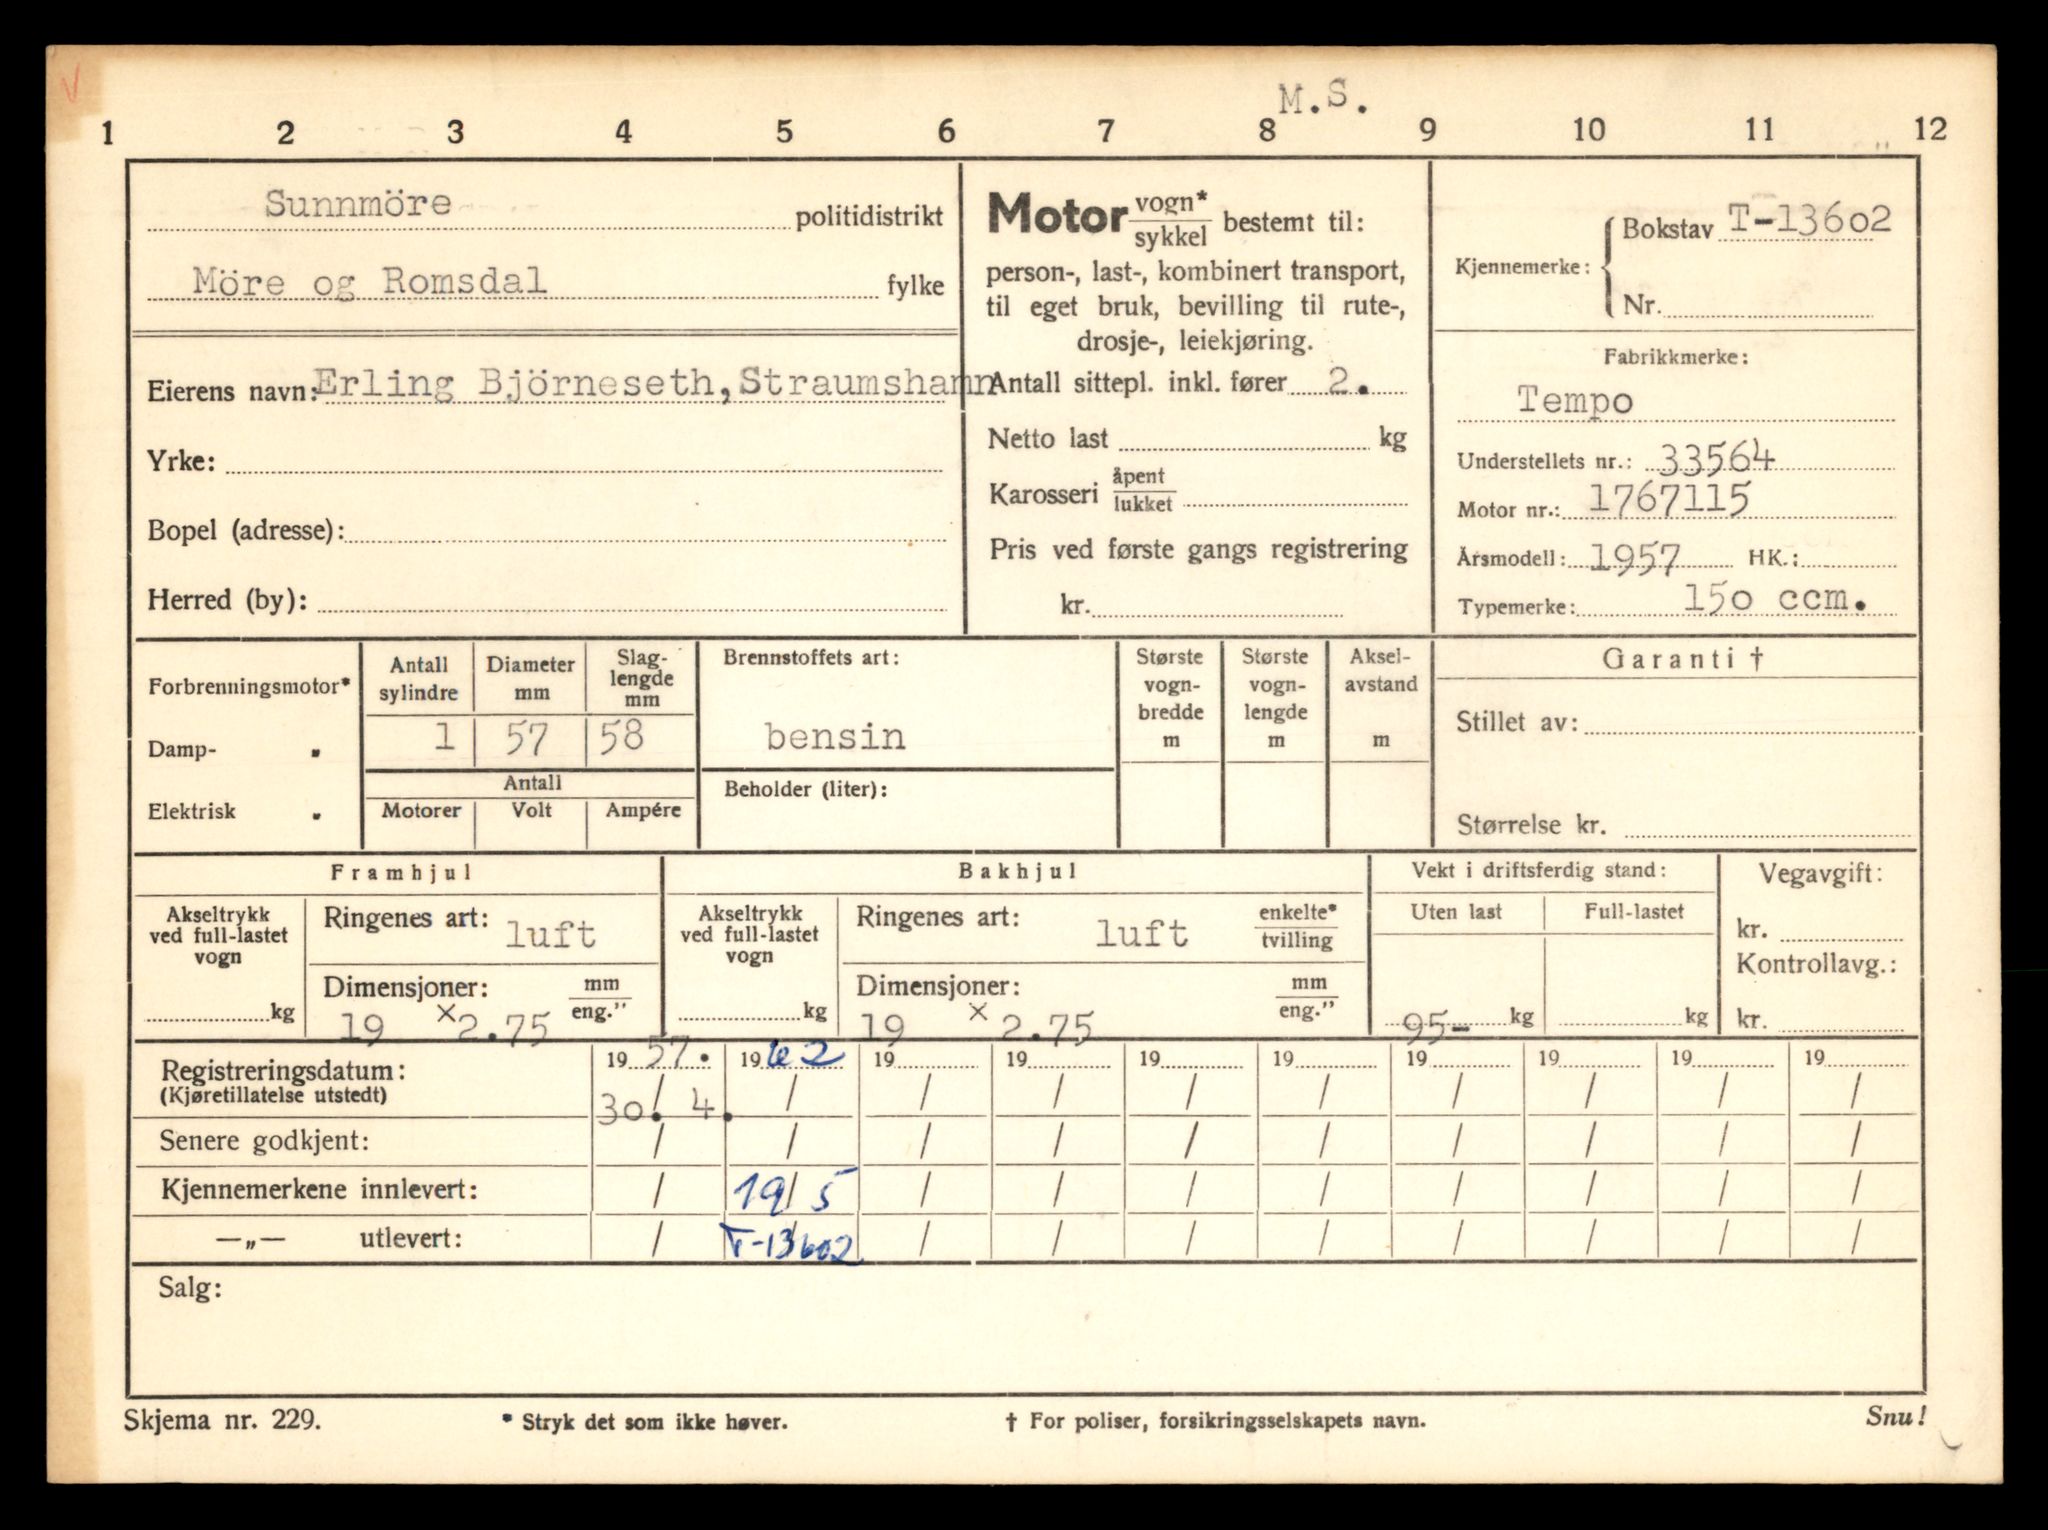 M.S.
1 2 3 4 5 6 7 8 9 10 11 12
Sunnmöre politidistrikt
Möre og Romsdal fylke
Eierens navn: Erling Björneseth, Straumshamn
Yrke:
Bopel (adresse):
Herred (by):
Motor vogn* / sykkel bestemt til:
person-, last-, kombinert transport,
til eget bruk, bevilling til rute-,
drosje-, leiekjøring.
Antall sittepl. inkl. fører 2.
Netto last kg
Karosseri åpent / lukket
Pris ved første gangs registrering
kr.
Kjennemerke: { Bokstav T-13602
Nr.
Fabrikkmerke:
Tempo
Understellets nr.: 33564
Motor nr.: 1767115
Årsmodell: 1957 HK.:
Typemerke: 150 ccm.
Forbrenningsmotor*
Damp- "
Elektrisk "
Antall sylindre Diameter mm Slag-lengde mm
1 57 58
Antall
Motorer Volt Ampére
Brennstoffets art:
bensin
Beholder (liter):
Største vogn-bredde m
Største vogn-lengde m
Aksel-avstand m
Garanti †
Stillet av:
Størrelse kr.
Framhjul
Akseltrykk
ved full-lastet
vogn
kg
Ringenes art: luft
Dimensjoner: mm / eng."
19 × 2.75
Bakhjul
Akseltrykk
ved full-lastet
vogn
kg
Ringenes art: luft enkelte* / tvilling
Dimensjoner: mm / eng."
19 × 2.75
Vekt i driftsferdig stand:
Uten last Full-lastet
95- kg kg
Vegavgift:
kr.
Kontrollavg.:
kr.
Registreringsdatum: 1957. 1962 19 19 19 19 19 19 19 19
(Kjøretillatelse utstedt) 30./4. / / / / / / / / /
Senere godkjent: / / / / / / / / / /
Kjennemerkene innlevert: / 19/5 / / / / / / / /
—„— utlevert: / T-13602 / / / / / / / /
Salg:
Skjema nr. 229. * Stryk det som ikke høver. † For poliser, forsikringsselskapets navn. Snu!